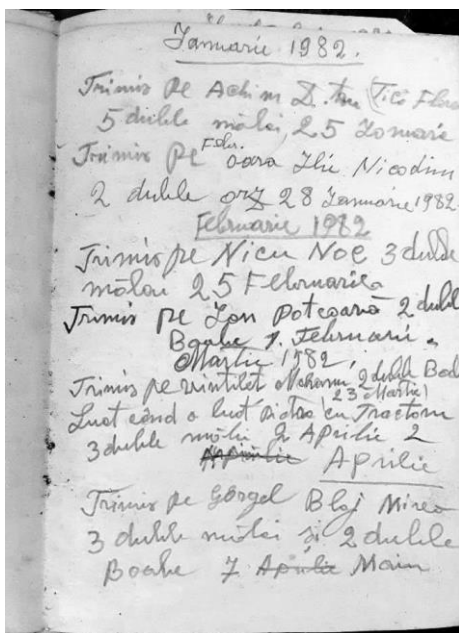 Ianuarie 1982.
Trimis pe Achim D. tru (Tică Flore
5 duble mălai, 25 Ionuarie
Trimis pe Febr. oara Ilie Nicodim
2 duble orz 28 Ianuarie 1982.
Februarie 1982
Trimis pe Nicu Noe 3 duble
mălai 25 Februarie
Trimis pe Ion Potcoavă 2 dubl
Boabe 1. Februarie
Martie 1982,
Trimis pe vintilet 2 duble Boab
(23 Martie)
Luat când a luat Piatra cu Tractoru
3 duble mălai 2 Aprilie 2
Aprilie Aprilie
Trimis pe Görgel Bloj Mirea
3 duble mălai și 2 duble
Boabe 7 Aprilie Main